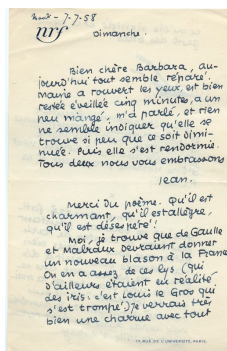 7-7-58
nrf
Dimanche.
Bien chère Barbara, au-
jourd'hui tout semble réparé.
Mania a rouvert les yeux, est bien
restée éveillée cinq minutes, a un
peu mangé, m'a parlé, et rien
ne semble indiquer qu'elle se
trouve si peu que ce soit dimi-
nuée. Puis elle s'est rendormie.
Tous deux nous vous embrassons
Jean.
Merci du poème. Qu'il est
charmant, qu'il est allègre,
qu'il est désespéré!!
Moi, je trouve que de Gaulle
et Malraux devraient donner
un nouveau blason à la France
On en a assez de ces lys (qui
d'ailleurs étaient en réalité
des iris: c'est Louis le Gros qui
s'est trompé) je verrais très
bien une charrue avec tout
17, RUE DE L'UNIVERSITÉ, PARIS.